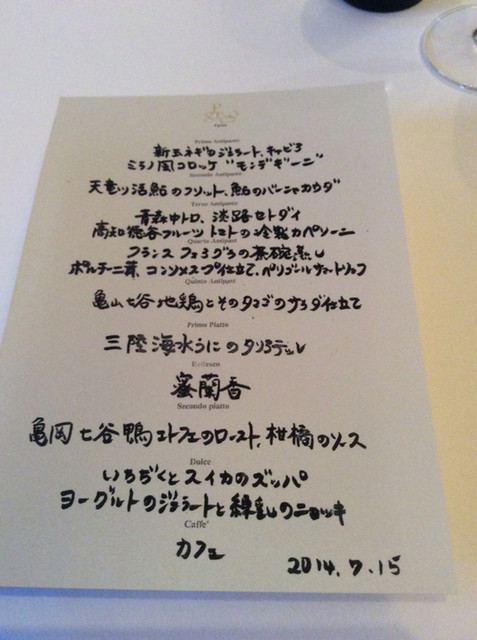 Primo Antipasto
新玉ネギのジェラート、キャビア
ミラノ風コロッケ "モンデギーニ"
Secondo Antipasto
天竜川活鮎のフリット、鮎のバーニャカウダ
Terzo Antipasto
青森中トロ、淡路セトダイ
高知徳谷フルーツトマトの冷製カペリーニ
Quarto Antipast
フランスフォアグラの茶碗蒸し
ポルチーニ茸、コンソメスープ仕立て、ペリゴールサマートリュフ
Quinto Antipast
亀山七谷地鶏とそのタマゴのサラダ仕立て
Primo Piatto
三陸海水うにのタリアテッレ
蜜蘭香
Secondo piatto
亀岡七谷鴨エトフェのロースト、柑橘のソース
Dulce
いちぢくとスイカのズッパ
ヨーグルトのジェラートと練乳のニョッキ
Caffe'
カフェ
2014.7.15